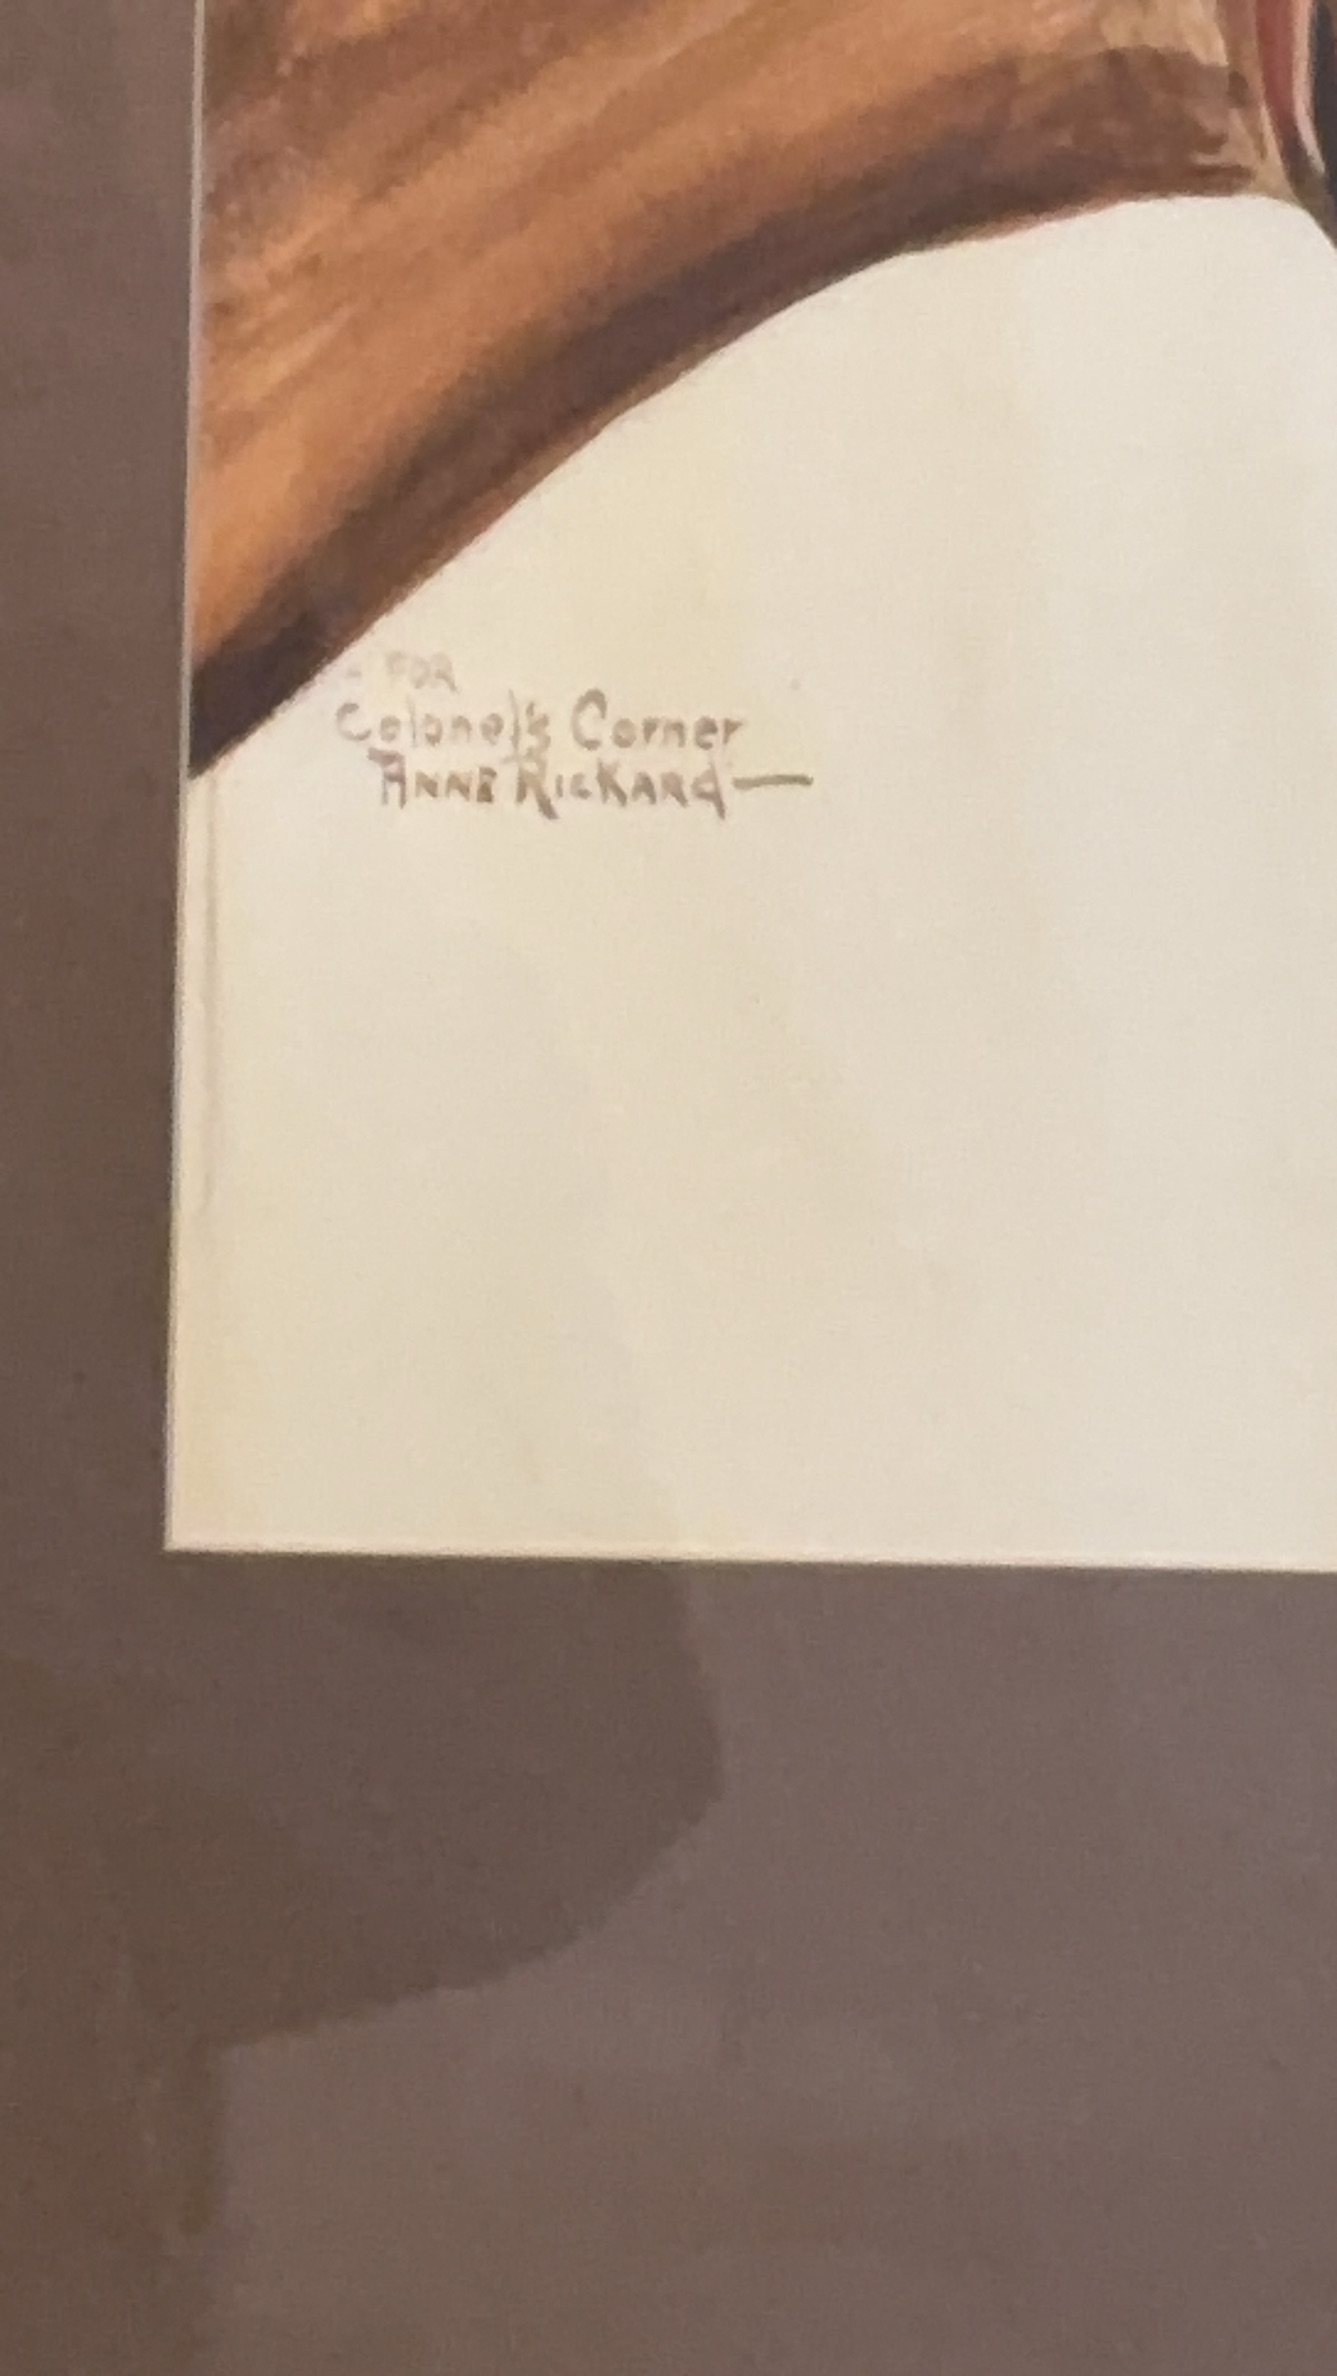 - FOR
Colonel's Corner
ANNE RICKARD—